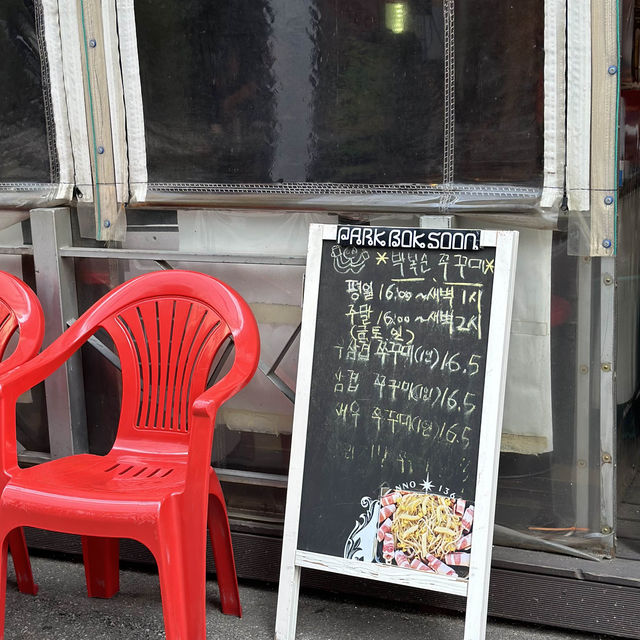 PARK BOK SOON
* 박복순 쭈꾸미 *
평일 16:00 ~ 새벽 1시
주말 16:00 ~ 새벽 2시
(금토일)
삼겹 쭈꾸미(1인) 16.5
쭈꾸미(1인) 16.5
새우 쭈꾸미(1인) 16.5